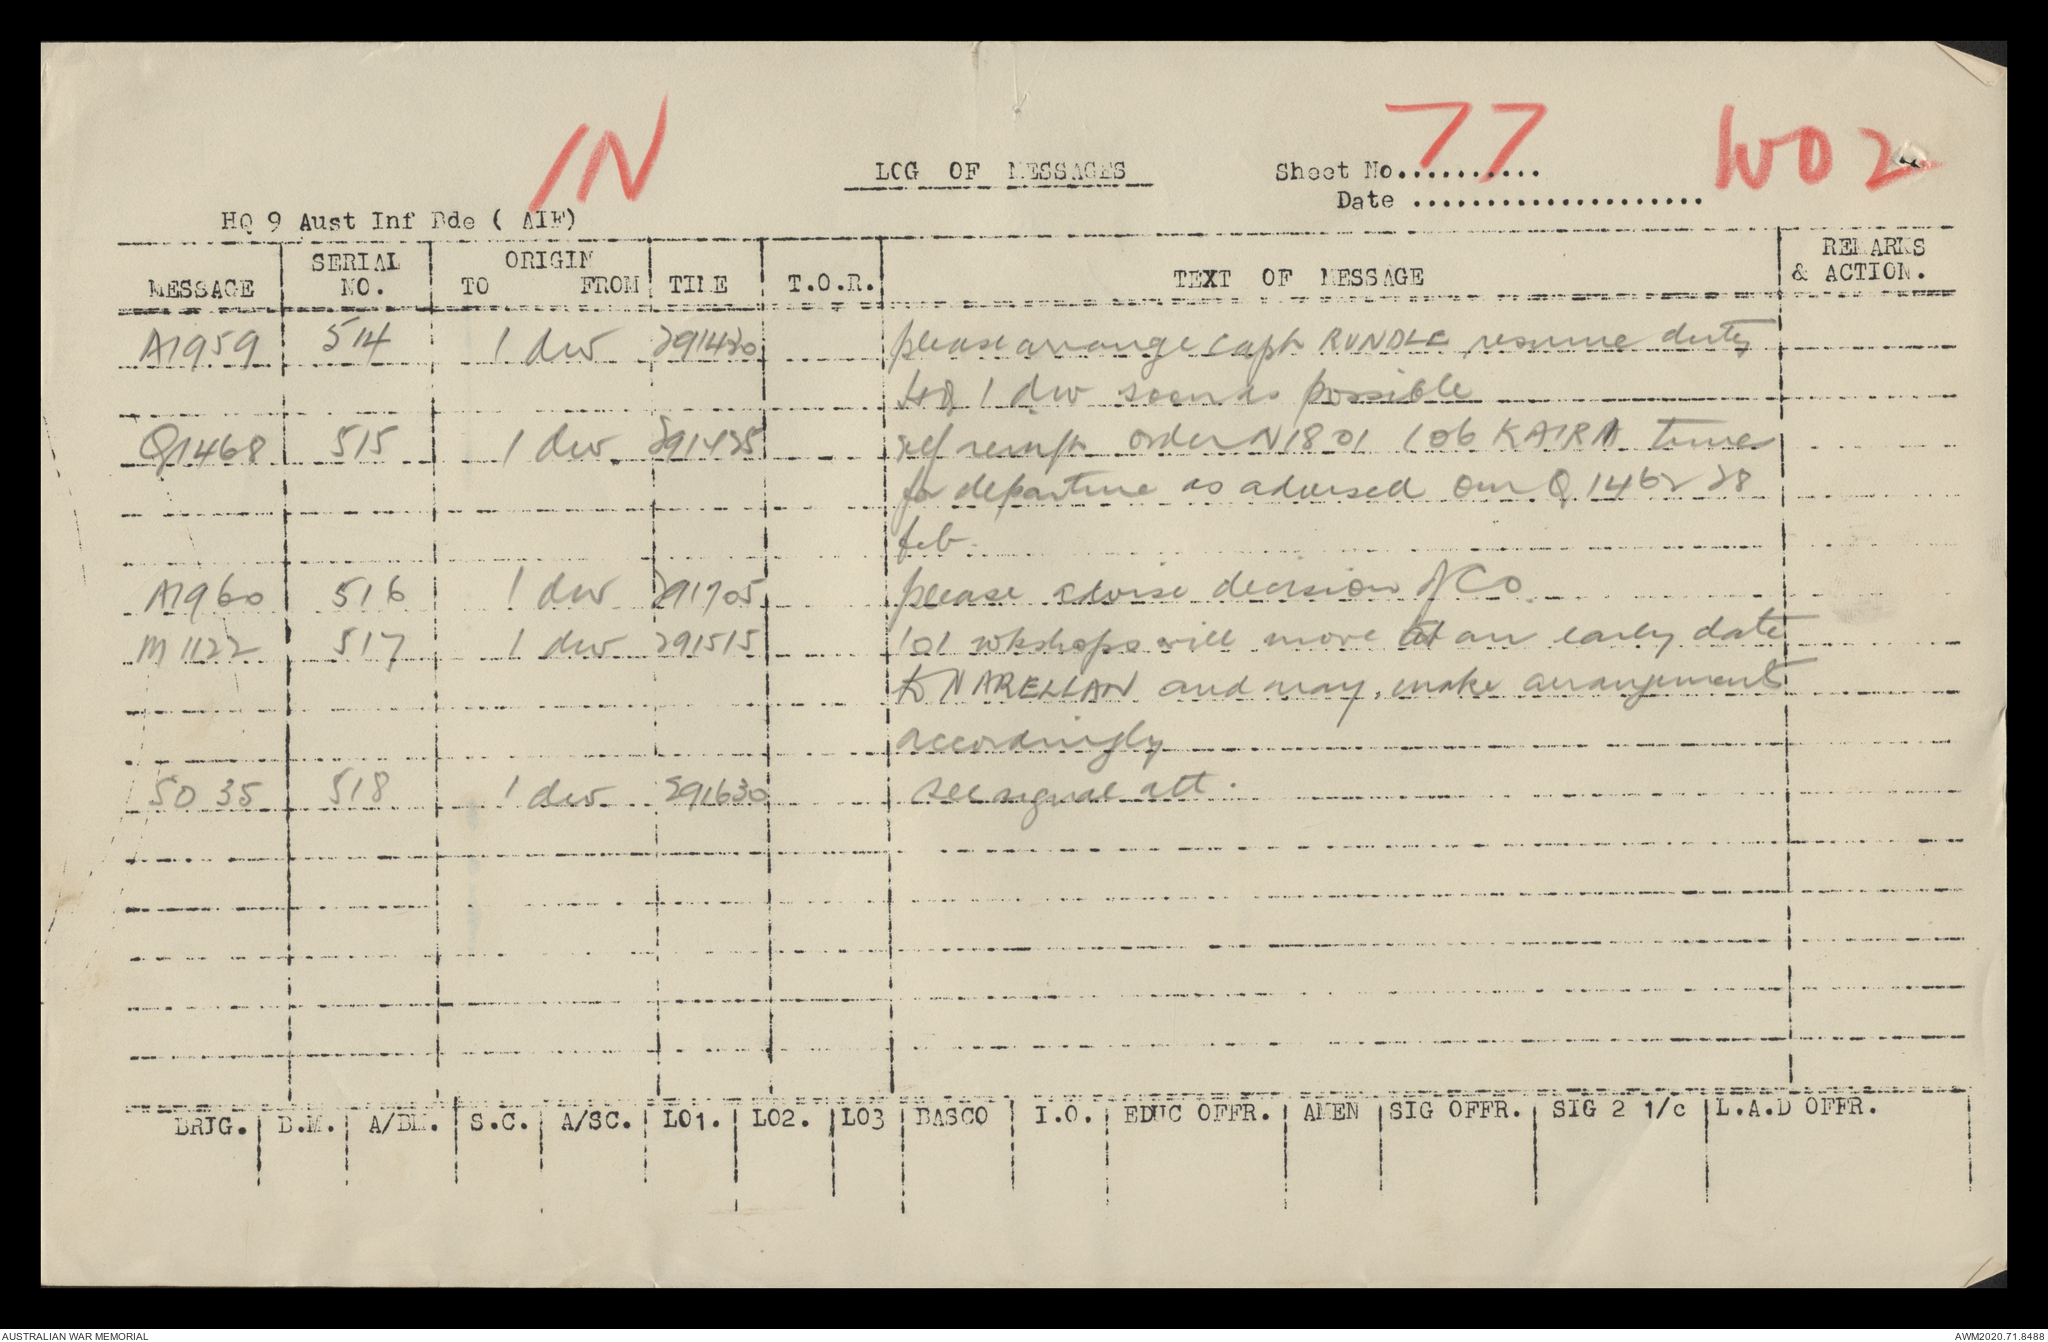 IN
77
WO2
LOG OF MESSAGES
Sheet No..........
Date ....................
HQ 9 Aust Inf Bde ( AIF)
MESSAGE SERIAL NO. ORIGIN TO FROM TIME T.O.R. TEXT OF MESSAGE REMARKS & ACTION.
A1959 514 1 div 291420 please arrange capt RUNDLE resume duty
HQ 1 div soonds possible
Q1468 515 1 div 291425 ref order N1801 106 KAIRA time
for departure as advised our Q 1462 28
feb.
A1960 516 1 div 291705 please advise decision of CO
M1122 517 1 div 291515 101 wkshops will move at an early date
to NARELLAN and may make arrangements
accordingly
SD 35 518 1 div 291630 see signal att.
BRIG. B.M. A/BM. S.C. A/SC. LO1. LO2. LO3 BASCO I.O. EDUC OFFR. AMEN SIG OFFR. SIG 2 1/c L.A.D OFFR.
AUSTRALIAN WAR MEMORIAL
AWM2020.71.8488